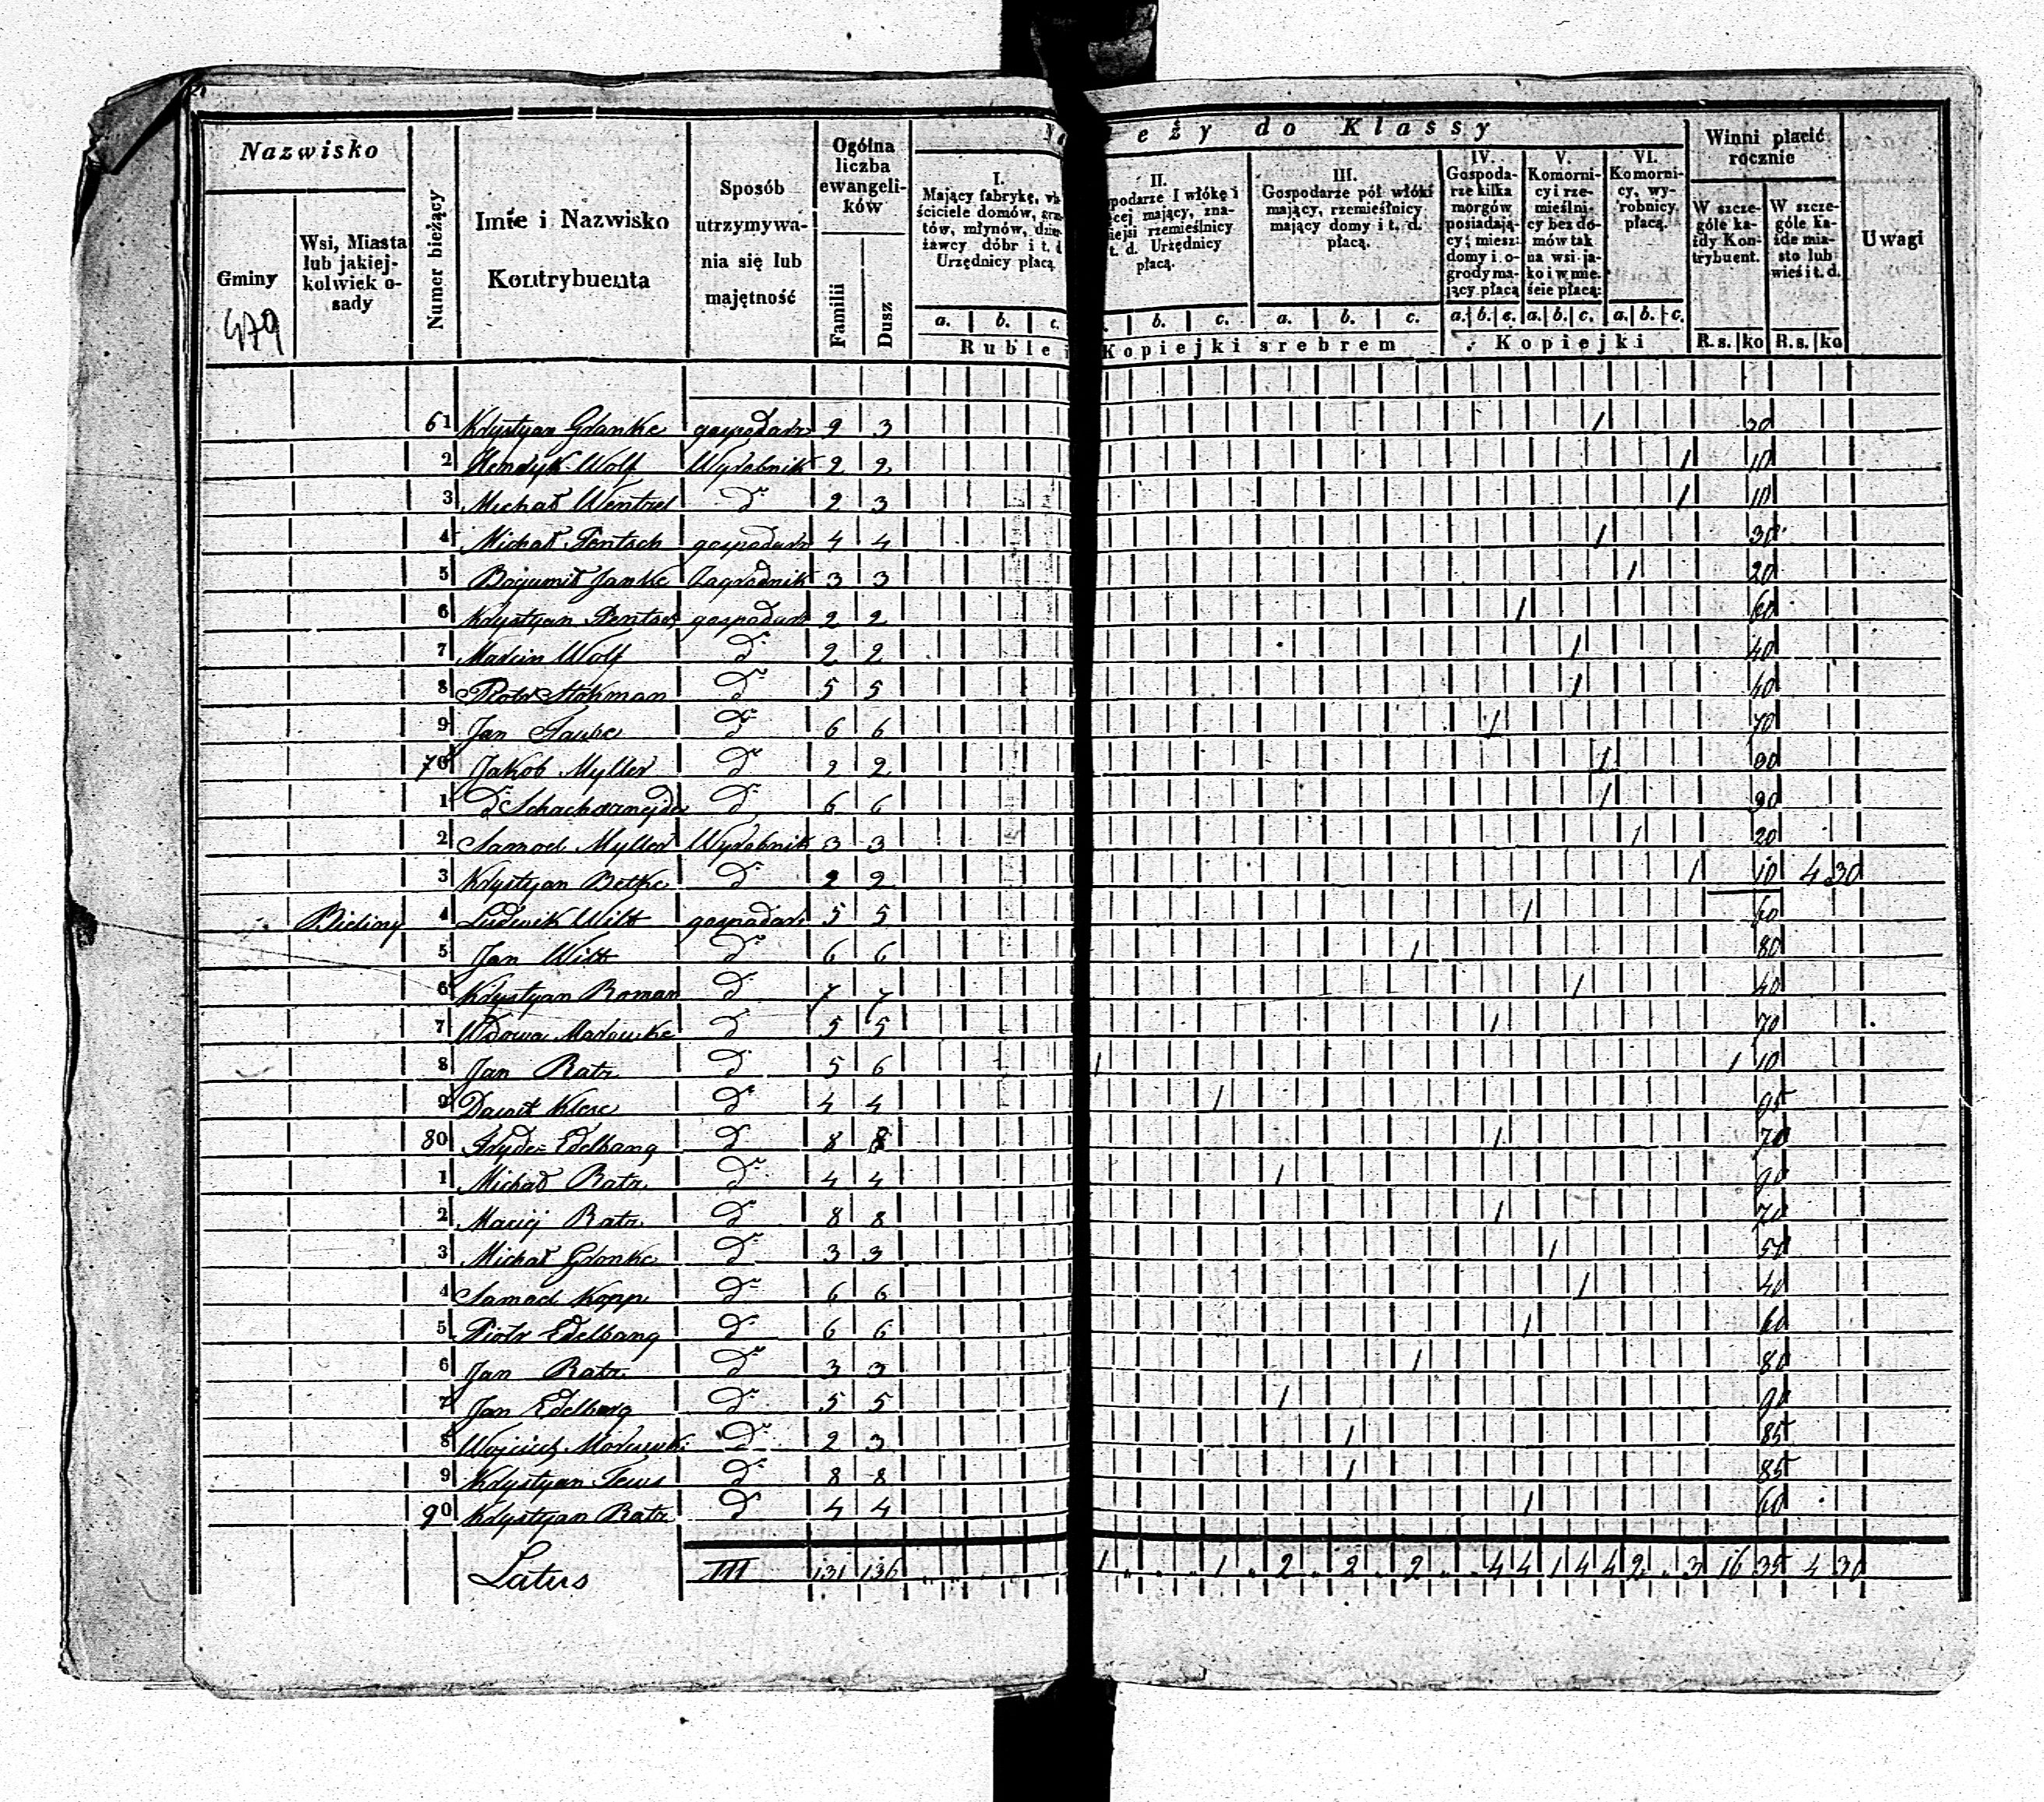 Należy do Klassy
Nazwisko
Gminy
Wsi, Miasta lub jakiejkolwiek osady
Numer bieżący
Imie i Nazwisko Kontrybuenta
Sposób utrzymywania się lub majętność
Ogólna liczba ewangelików
Familii
Dusz
I.
Mający fabrykę, właściciele domów, gruntów, młynów, dzierżawcy dóbr i t. d. Urzędnicy płacą
II.
Gospodarze 1 włókę i więcej mający, znaczniejsi rzemieślnicy i t. d. Urzędnicy płacą.
III.
Gospodarze pół włóki mający, rzemieślnicy mający domy i t. d. płacą.
IV.
Gospodarze kilka morgów posiadający; miesz: domy i ogrody mający płacą
V.
Komornicy i rzemieślnicy bez domów tak na wsi jako i w mieście płacą:
VI.
Komornicy, wyrobnicy płacą.
Winni płacić rocznie
W szczególe każdy Kontrybuent.
W szczególe każde miasto lub wieś i t. d.
Uwagi
a. b. c. a. b. c. a. b. c. a. b. c. a. b. c. a. b. c.
Ruble i Kopiejki srebrem
Kopiejki
R.s. ko R.s. ko
479
61 Krystyan Granke gospodarz 2 3 1 30
2 Hendryk Wolf Wyrobnik 2 2 1 10
3 Michał Wentzel do 2 3 1 10
4 Michał Pentsch gospodarz 4 4 1 30
5 Bogumił Janke Zagrodnik 3 3 1 20
6 Krystyan Pentsch gospodarz 2 2 1 60
7 Marcin Wolf do 2 2 1 40
8 Piotr Stokman do 5 5 1 40
9 Jan do 6 6 1 70
70 Jakob Myller do 2 2 1 30
1 do do 6 6 1 30
2 Samoel Myller Wyrobnik 3 3 1 20
3 Krystyan Betke do 2 2 1 10 4 30
Bieliny 4 Ludwik Witt gospodarz 5 5 1 60
5 Jan Witt do 6 6 1 80
6 Krystyan Roman do 7 7 1 40
7 Wdowa do 5 5 1 70
8 Jan Ratz do 5 6 1 1 10
9 Dawid do 4 4 1 95
80 Fryde= Edelbang do 8 8 1 70
1 Michał Ratz do 4 4 1 90
2 Maciej Ratz do 8 8 1 70
3 Michał Gronke do 3 3 1 50
4 Samoel Kopp do 6 6 1 40
5 Piotr Edelbang do 6 6 1 60
6 Jan Ratz do 3 3 1 80
7 Jan Edelbang do 5 5 1 90
8 Wojciech do 2 3 1 85
9 Krystyan Tews do 8 8 1 85
90 Krystyan Ratz do 4 4 1 60
Latus III 131 136 1 1 2 2 2 4 4 1 4 4 2 3 16 35 4 30